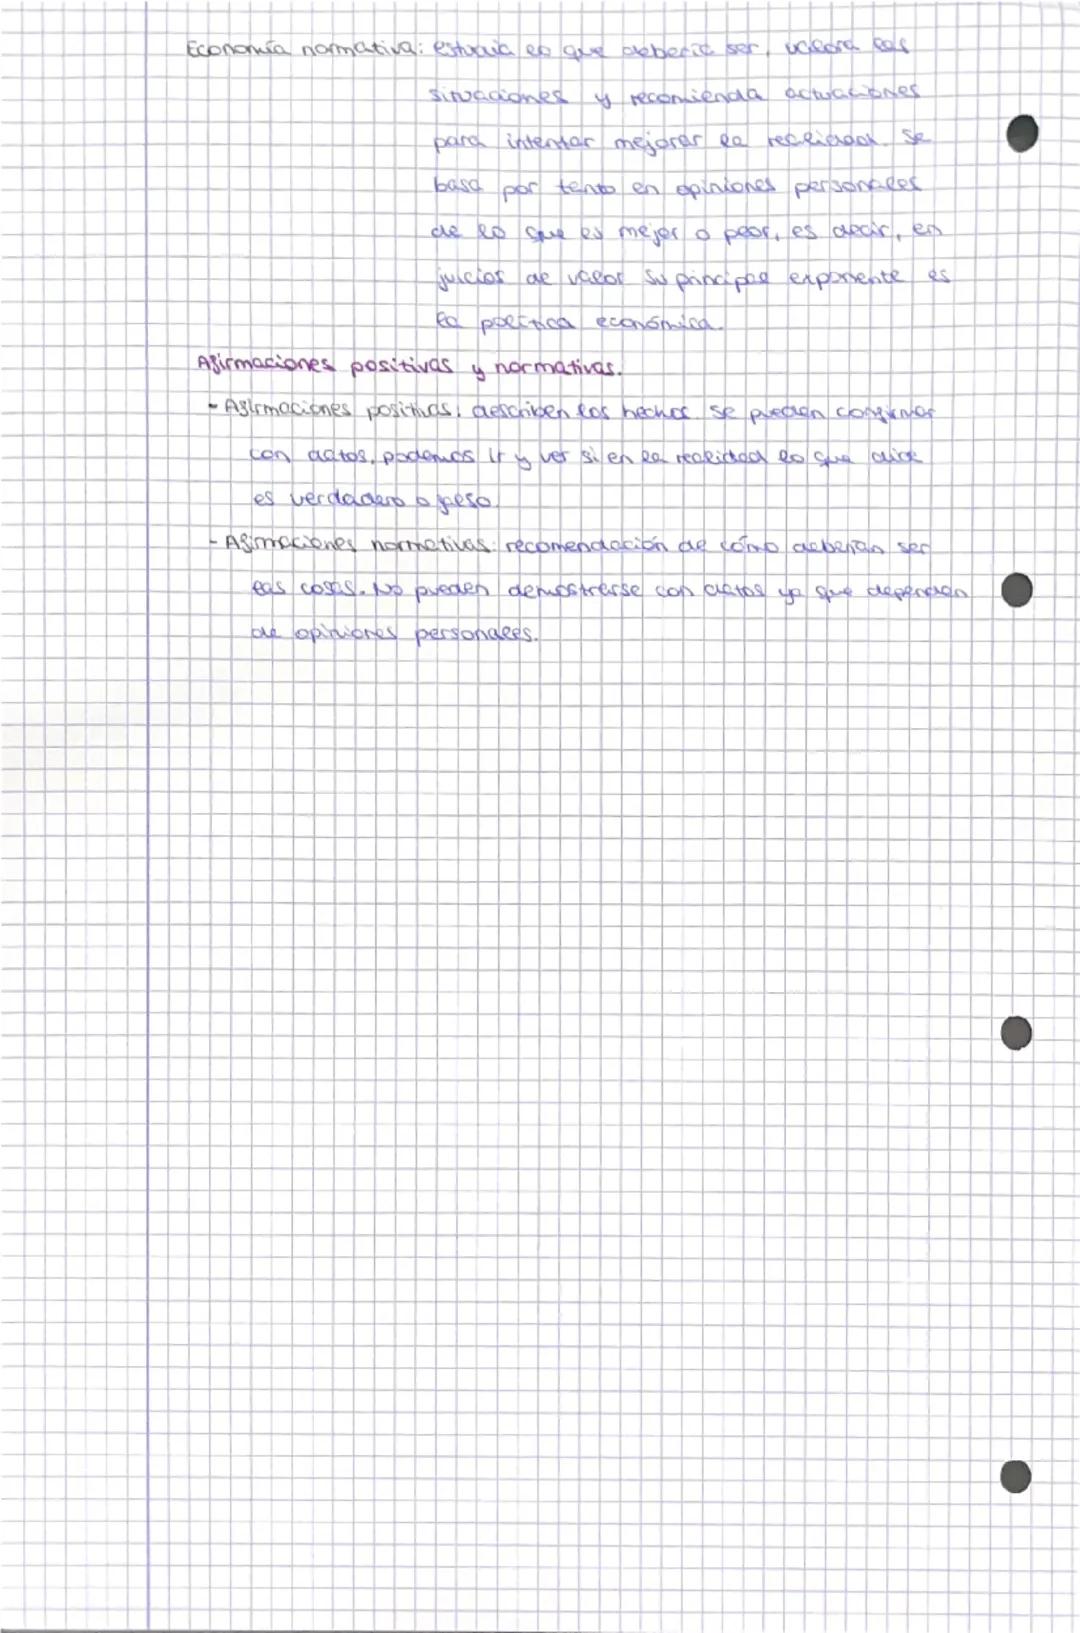 Economía normativa: estudia lo que debería ser, valora las
situaciones y recomienda actuaciones
para intentar mejorar la realidad. Se
basa por tanto en opiniones personales
de lo que es mejor o peor, es decir, en
juicios de valor. Su principal exponente es
la política económica.
Afirmaciones positivas y normativas.
- Afirmaciones positivas: describen los hechos. Se pueden confirmar
con datos, podemos ir y ver si en la realidad lo que dice
es verdadero o falso.
- Afirmaciones normativas: recomendación de cómo deberían ser
las cosas. No pueden demostrarse con datos ya que dependen
de opiniones personales.